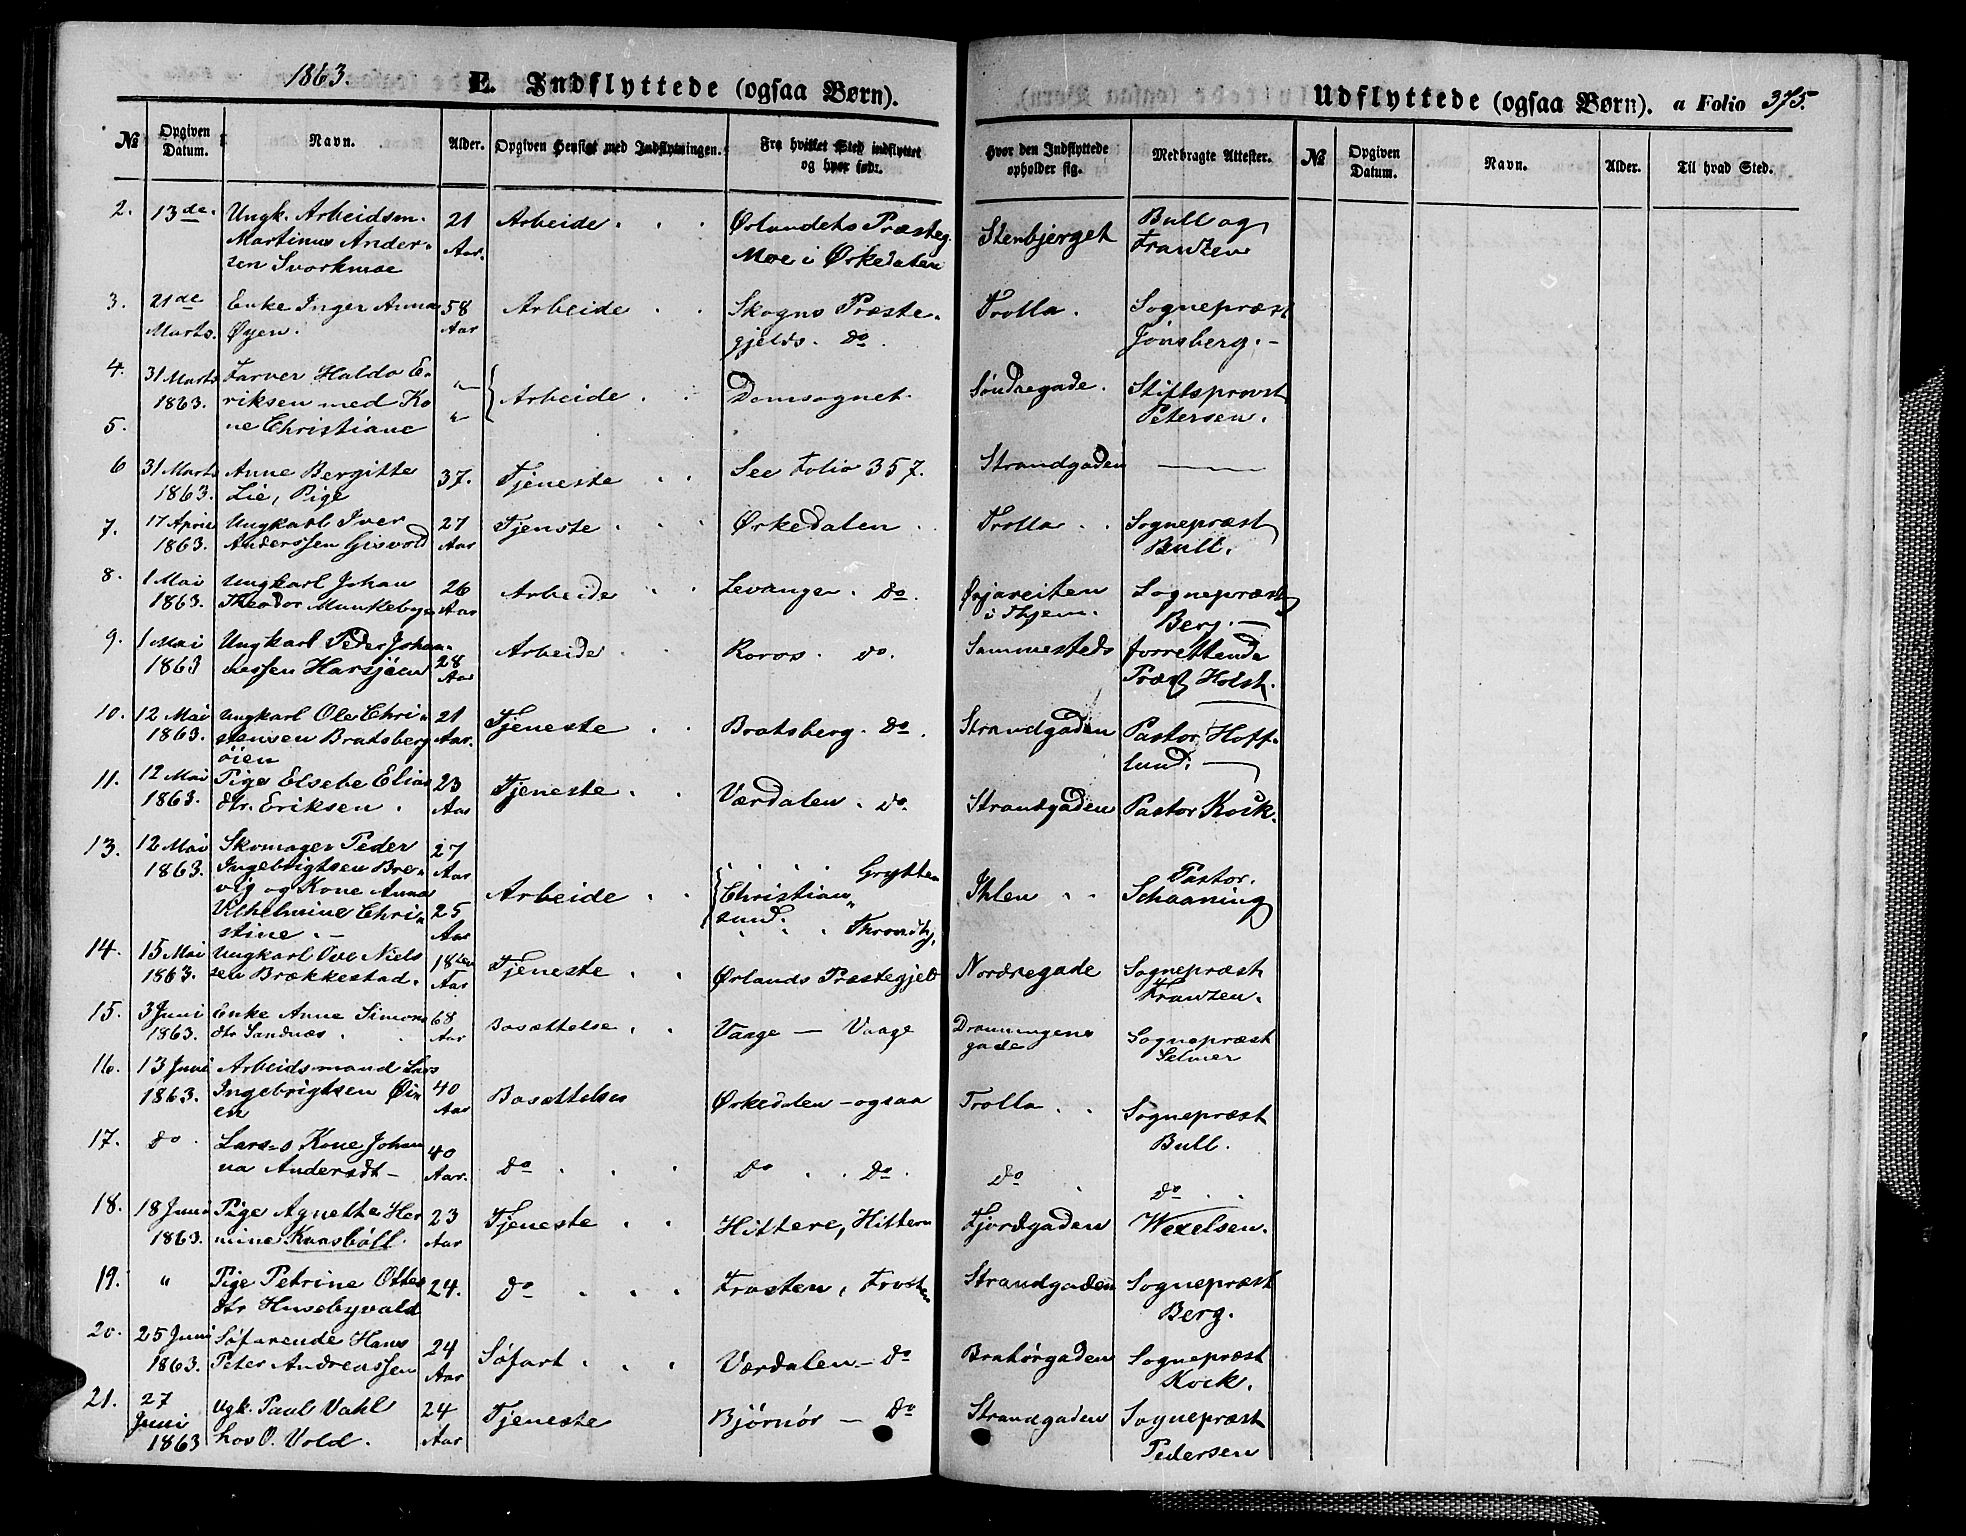 1863. E. Indflyttede (ogsaa Børn).
Udflyttede (ogsaa Børn). a Folio 375.
№ Opgiven Datum. Navn. Alder. Opgiven Hensigt med Indflytningen. Fra hvilket Sted indflyttet og hvor født. Hvor den Indflyttede opholder sig. Medbragte Attester. № Opgiven Datum. Navn. Alder. Til hvad Sted.
2. 13de. Ungk. Arbeidsm. 21 Arbeide . . Ørlandets Præsteg. Stenbjerget Bull og
Martinus Ander- Aar. Moe i Ørkedalen Frantzen
sen Svorkmoe
3. 21de Enke Inger Anna 58 Arbeide . . Skogns Præste- Trolla. Sognepræst
Marts. Øyen. Aar gjelds. do. Jønsberg. —
4. 31 Marts Farver Haldo E- " Arbeide . . Domsognet. Søndregade. Stiftsprovst
1863. riksen med Ko " Petersen.
5. ne Christiane
6 31 Marts Anne Bergitte 37. Tjeneste . . See Folio 357. Strandgaden ——
1863. Lie, Pige
7. 17 April Ungkarl Iver 27 Tjenste . . . Ørkedalen . Trolla . . Sognepræst
1863. Anderssen Gisvold Aar Bull.
8. 1 Mai Ungkarl Johan 26 Arbeide . . Levanger. do. Øyareiten Sognepræst
1863. Theodor Munkebye Aar i Thjem. Berg. —
9. 1 Mai Ungkarl Peder Johan- 28 Arbeide . . Roros. do. Sammesteds forrettende
1863 nessen Harsjøen Aar Præst Holst.
10. 12 Mai Ungkarl Ole Chri- 21 Tjeneste . . Bratsberg. do. Strandgaden Pastor Hoff-
1863. stensen Bratsberg Aar. lund. —
øien
11. 12 Mai Pige Elsebe Elias 23 Tjeneste . . Værdalen. do. Strandgaden Pastor Kock.
1863. dtr. Eriksen. Aar
13. 12 Mai Skomager Peder 27 Arbeide . . Grytten Ihlen . . Pastor.
1863. Ingebrigtsen Bre- Aar Christian- Schaaning
vig og Kone Anna sund.
Vilhelmine Chri- 25 Thronhj,
stine. — Aar
14. 15 Mai Ungkarl Ove Niels 18 Tjeneste . . Ørlands Præstegjeld Nordregade Sognepræst
1863. sen Brækkestad. Aar Frantzen.
15. 3 Juni Enke Anne Simons 68 Bosættelse . . Vaage — Vaage Dronningens Sognepræst
1863. dtr Sandnæs . Aar gade Selmer
16. 13 Juni Arbeidsmand Lars 40 Bosættelse Ørkedalen - ogsaa Trolla . . Sognepræst
1863. Ingebrigtsen Øi- Aar Bull.
en
17. do. Lars's Kone Johan 40 do . . . do . . do. do . do . .
na Andersdt — Aar.
18. 18 Juni Pige Agnette Her 23 Tjeneste . . Hittere, Hittern Fjordgaden Wexelsen.
1863. mine Kaasbøll. Aar
19. " Pige Petrine Otter 24. do . . . Frosten, Frosten Strandgaden Sognepræst
dtr Husebyvald Berg.
20. 25 Juni Søfarende Hans 24 Søfart . . . Værdalen — do Brahørgaden Sognepræst
1863. Peter Andreassen Aar Kock.
21. 27 Ugk. Paul Vahl 24 Tjeneste Bjørnør — do Strandgaden Sognepræst
Juni hov O. Vold. Aar Pedersen
1863